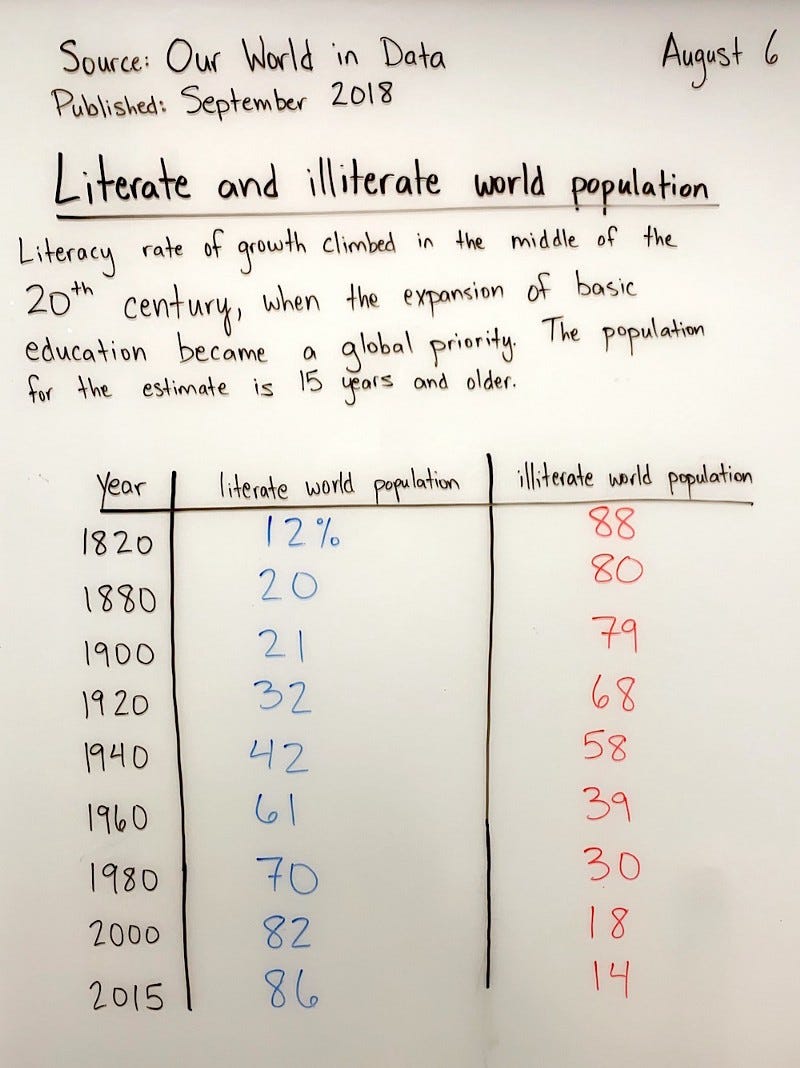 Source: Our World in Data
August 6
Published: September 2018
Literate and illiterate world population
Literacy rate of growth climbed in the middle of the
20th century, when the expansion of basic
education became a global priority. The population
for the estimate is 15 years and older.
Year literate world population illiterate world population
1820 12% 88
1880 20 80
1900 21 79
1920 32 68
1940 42 58
1960 61 39
1980 70 30
2000 82 18
2015 86 14